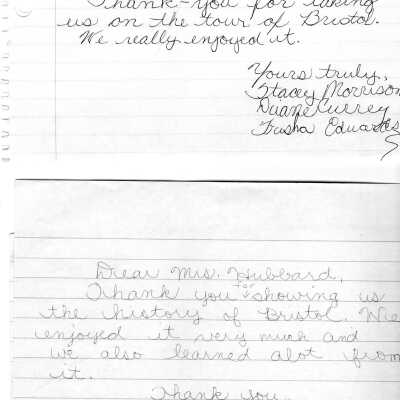 Thank-you for taking
us on the tour of Bristol.
We really enjoyed it.
Yours truly,
Stacey Morrison
Duane Currey
Trisha Edwards
Dear Mrs. Hubbard,
Thank you for showing us
the history of Bristol. We
enjoyed it very much and
we also learned alot from
it.
Thank you